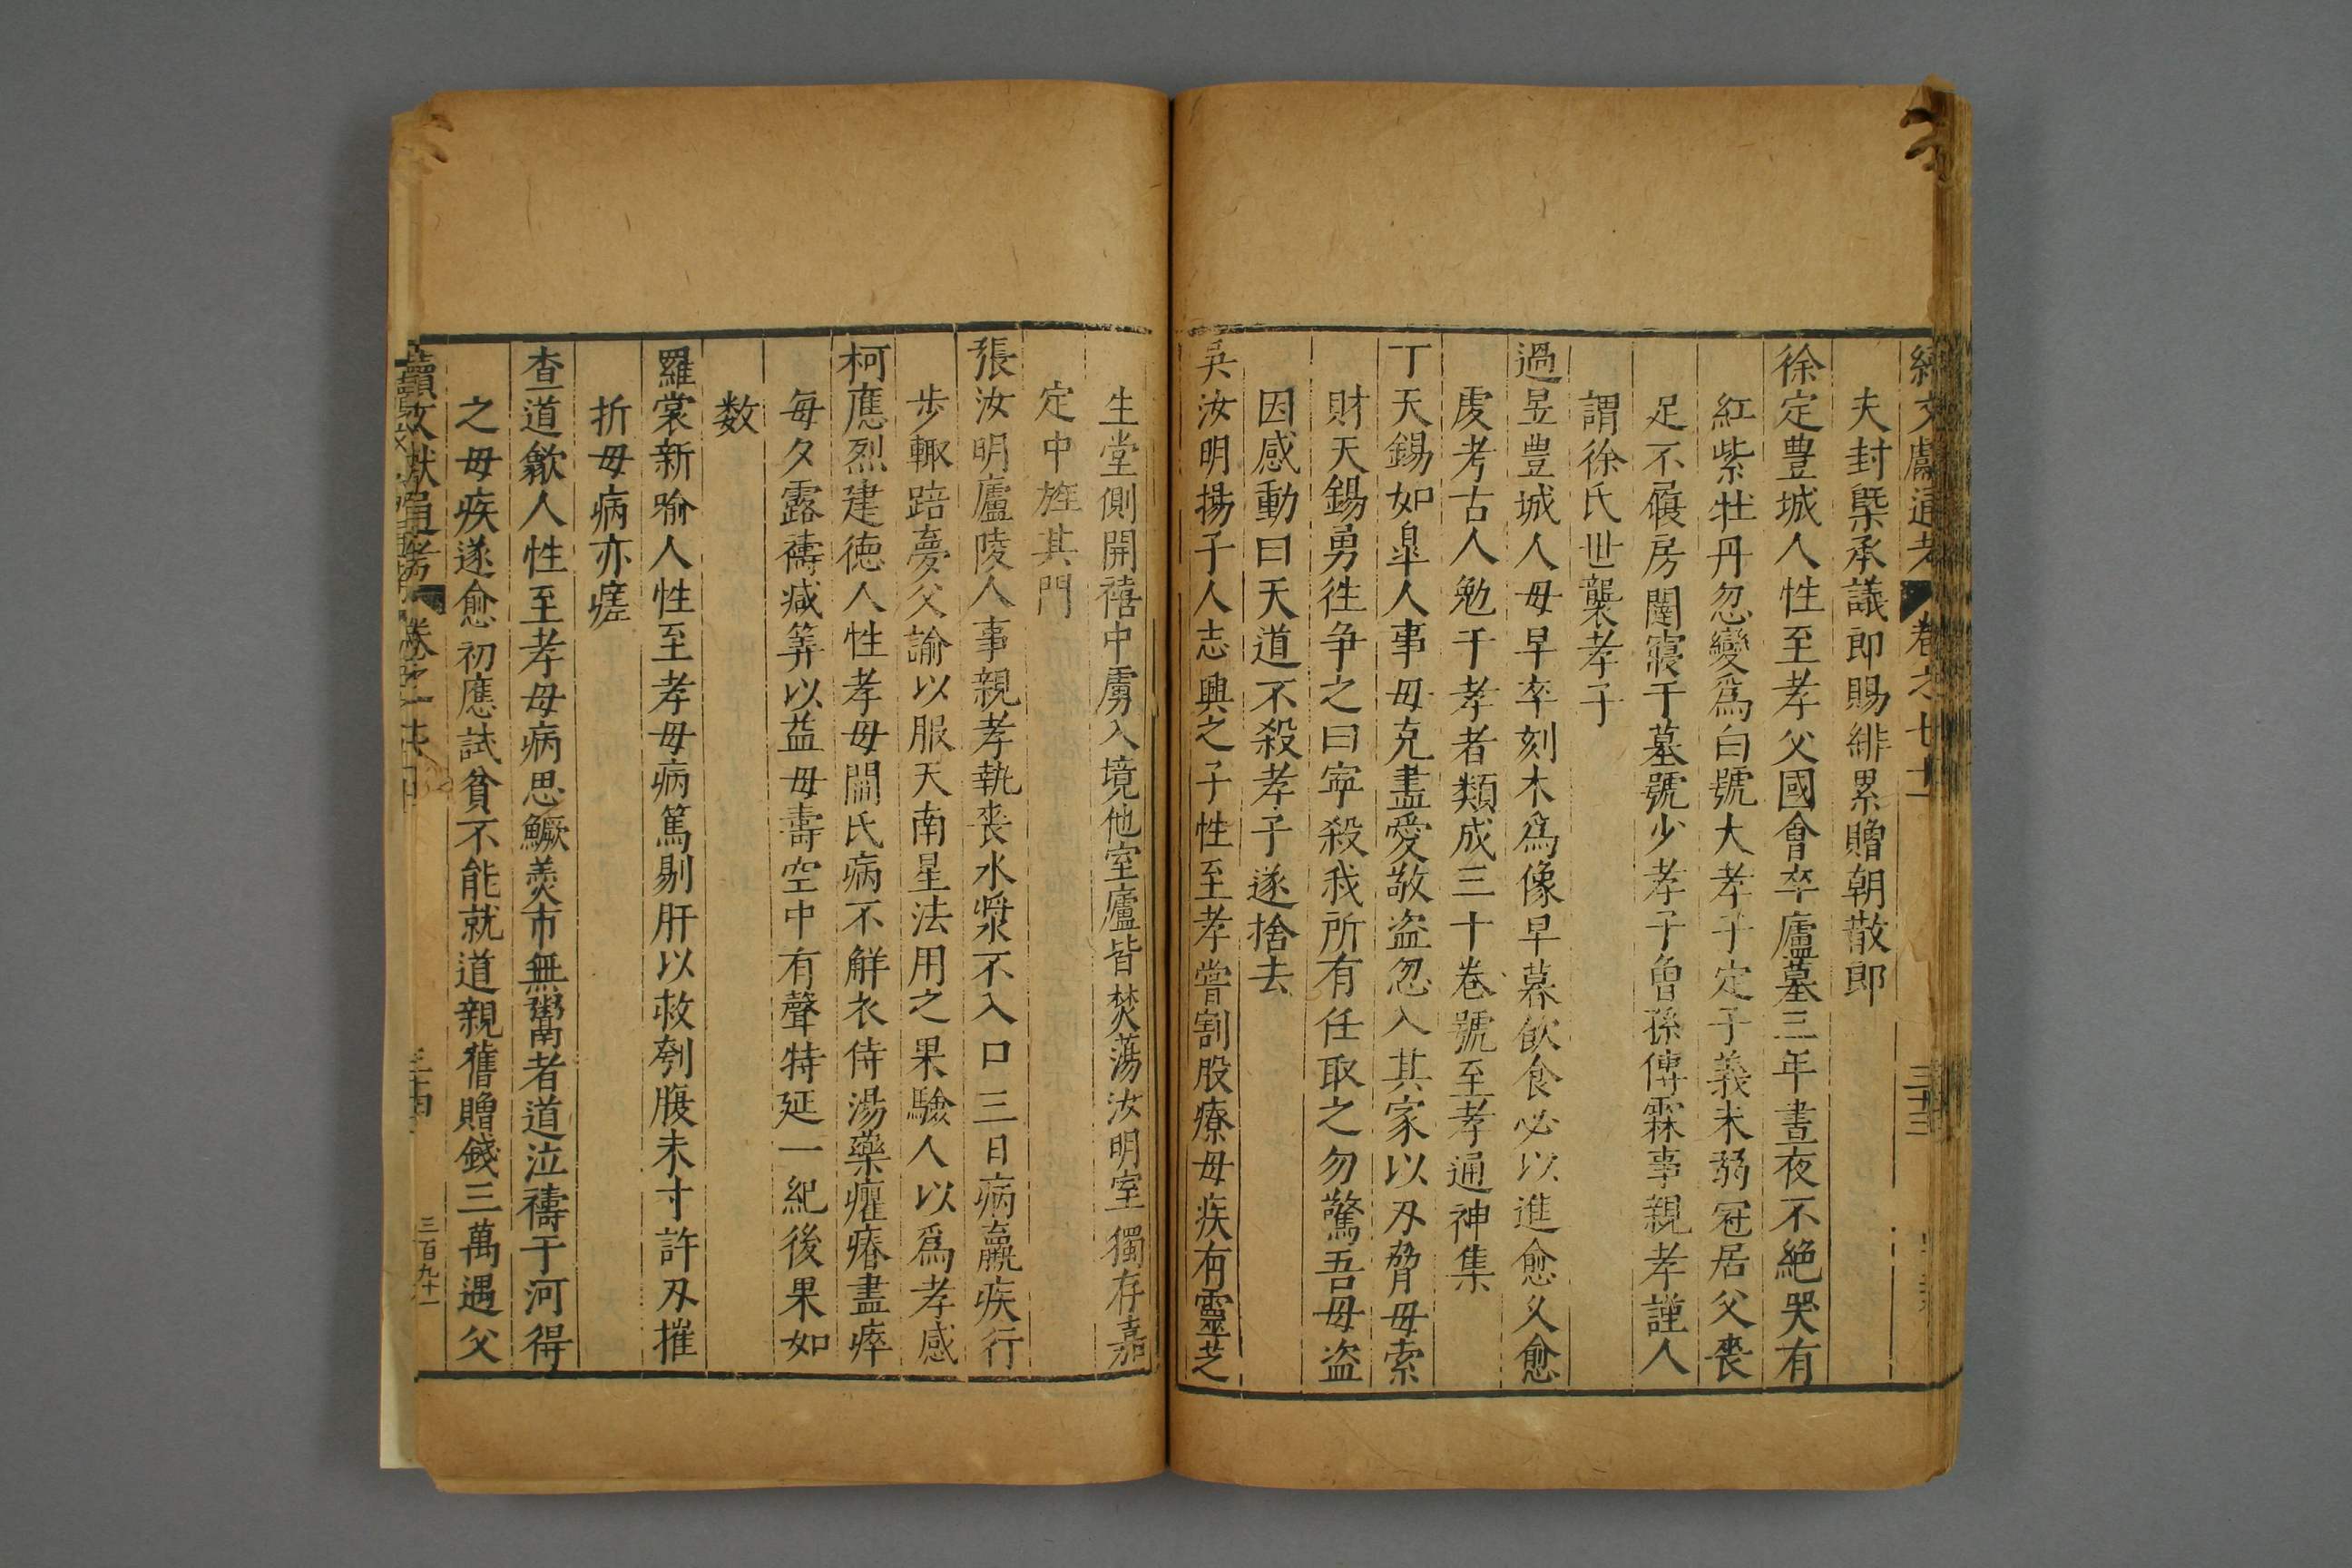 續文獻通考 卷之七十一 三十三
夫封槩承議即賜緋累贈朝散郎
徐定豊城人性至孝父國會卒廬墓三年晝夜不絶哭有
紅紫牡丹忽變爲白號大孝子定子義未弱冠居父喪
足不履房闥寢于墓號少孝子曾孫傅霖事親孝謹人
謂徐氏世襲孝子
過昱豊城人母早卒刻木爲像早暮飲食必以進愈乂愈
虔考古人勉于孝者類成三十卷號至孝通神集
丁天錫如臯人事母克盡愛敬盗忽入其家以刄脅母索
財天錫勇徃争之曰寧殺我所有任取之勿驚吾母盗
因感動曰天道不殺孝子遂捨去
吳汝明揚子人志興之子性至孝嘗割股療母疾有靈芝
生堂側開禧中虜入境他室廬皆焚蕩汝明室獨存嘉
定中旌其門
張汝明廬陵人事親孝執喪水漿不入口三日病羸疾行
步輙踣夢父諭以服天南星法用之果驗人以爲孝感
柯應烈建徳人性孝母闗氏病不解衣侍湯藥癯瘠盡瘁
每夕露禱减筭以益母壽空中有聲特延一紀後果如
数
羅裳新喻人性至孝母病篤剔肝以救刳腹未寸許刄摧
折母病亦瘥
查道歙人性至孝母病思鱖羮市無鬻者道泣禱于河得
之母疾遂愈初應試貧不能就道親舊贈錢三萬遇父
續文獻通考 卷之 三十四 三百九十一